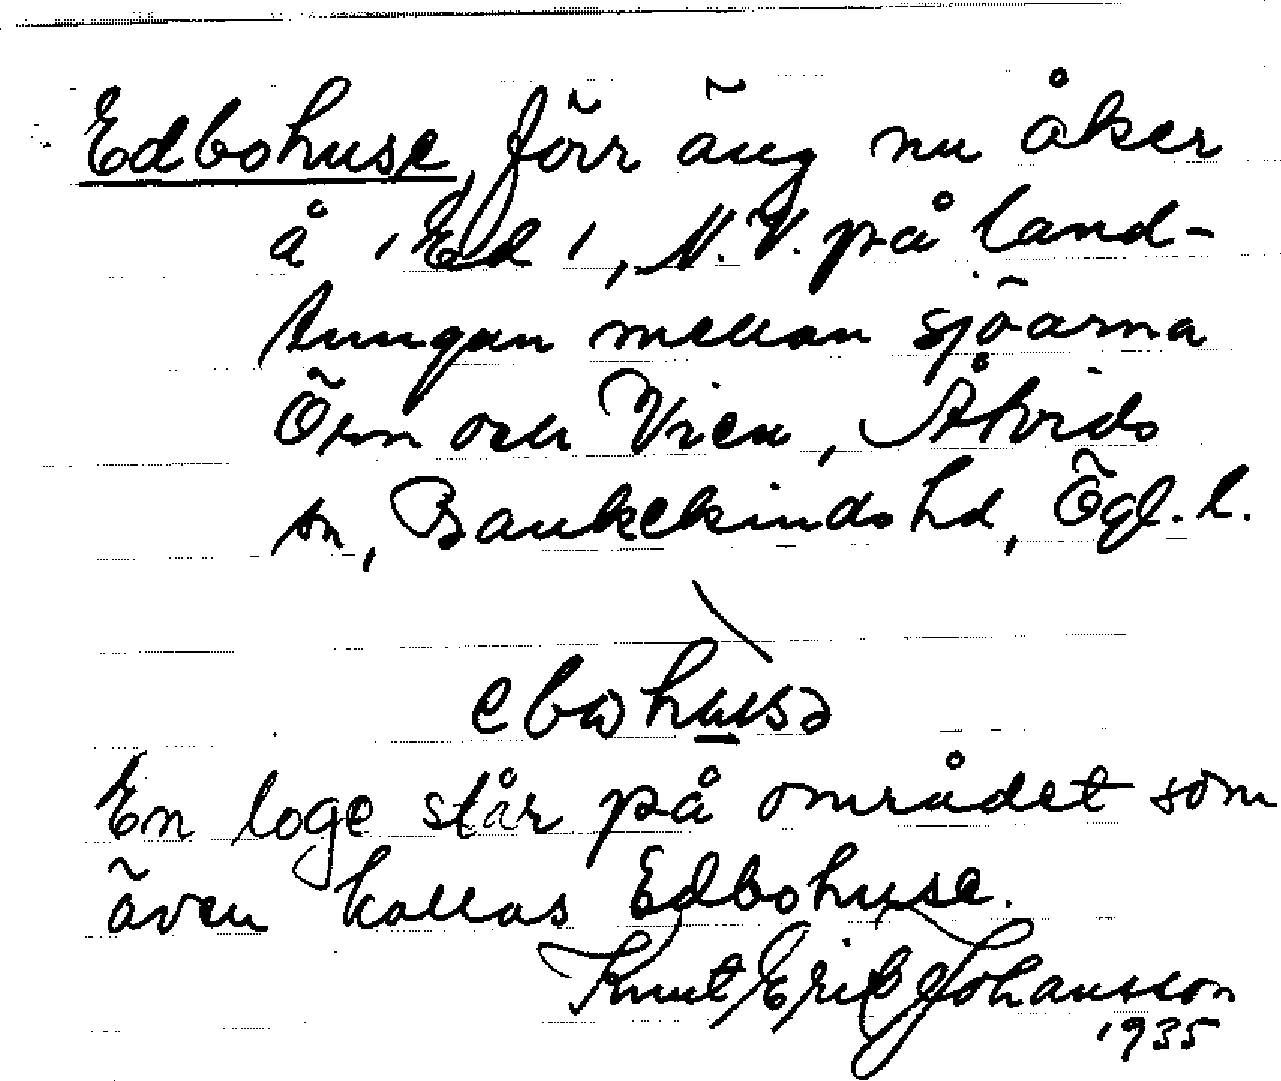 Edbohuse, förr äng nu åker
å 'Ed', N.V. på land-
tungan mellan sjöarna
Ören och Vien, Åtvids
sn, Bankekinds hd, Ögl. l.
ebωhusə
En loge står på området som
även kallas Edbohuse.
Knut Erik Johansson
1935